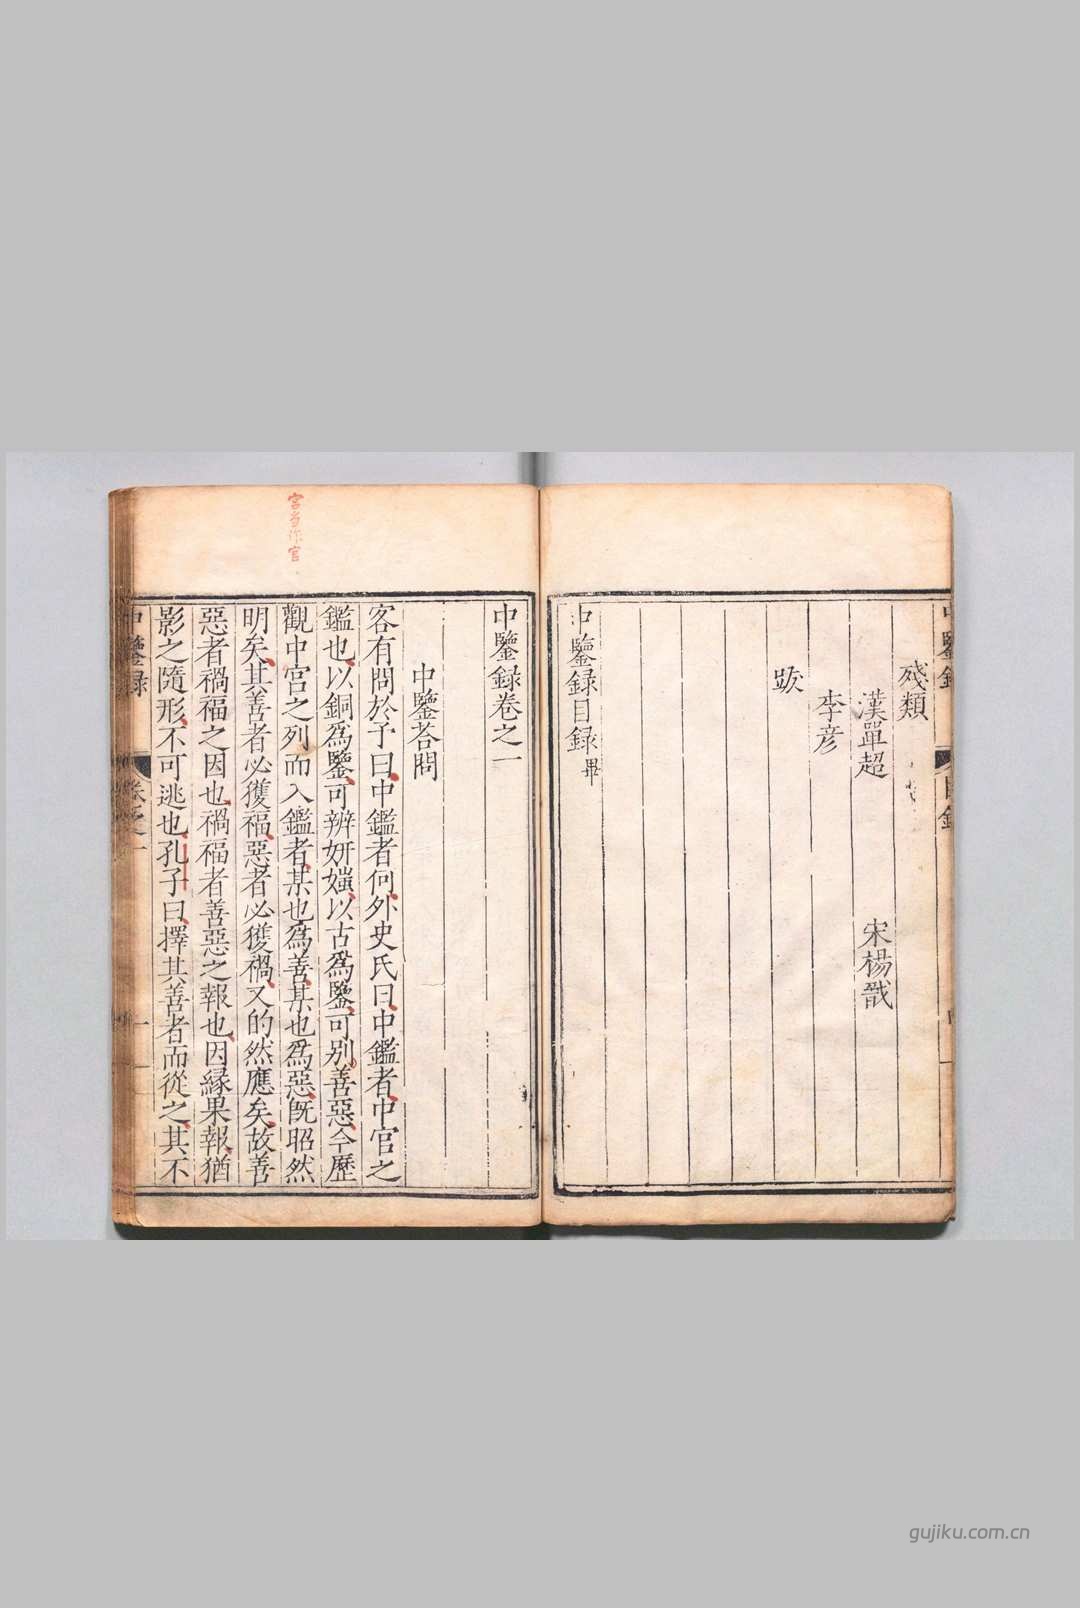 殘類
漢單超
宋楊戩
李彦
跋
中鑒録目録畢
中鑒録卷之一
中鑒荅問
客有問於予曰中鑑者何外史氏曰中鑑者中官之
鑑也以銅爲鑒可辨妍媸以古爲鑒可别善惡今歷
觀中宫之列而入鑑者某也爲善某也爲惡旣昭然
明矣其善者必獲福惡者必獲禍又的然應矣故善
惡者禍福之因也禍福者善惡之報也因緣果報猶
影之隨形不可逃也孔子曰擇其善者而從之其不
宫當作官
中鑒録
卷之一
一
目録
gujiku.com.cn